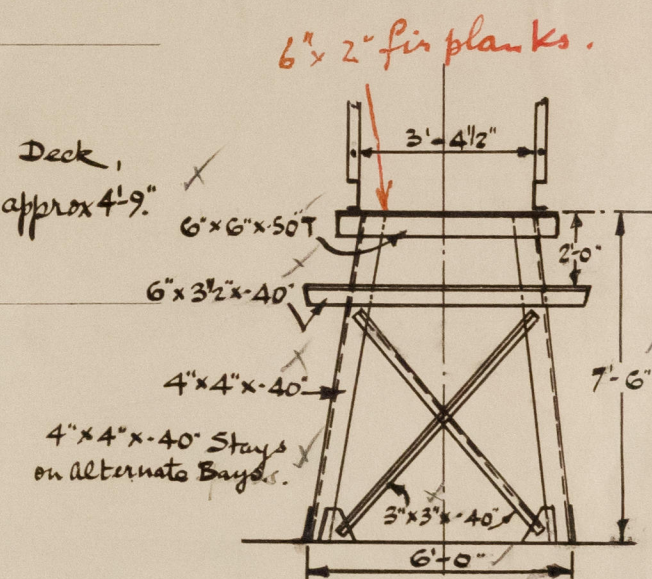 6" x 2" fir planks.
3'-4½"
Deck,
approx 4'-9."
6"x6"x·50"T
2'-0"
6"x3½"x·40"
4"x4"x·40"
7'-6"
4"x4"x·40" Stays
on Alternate Bays.
3"x3"x·40"
6'-0"